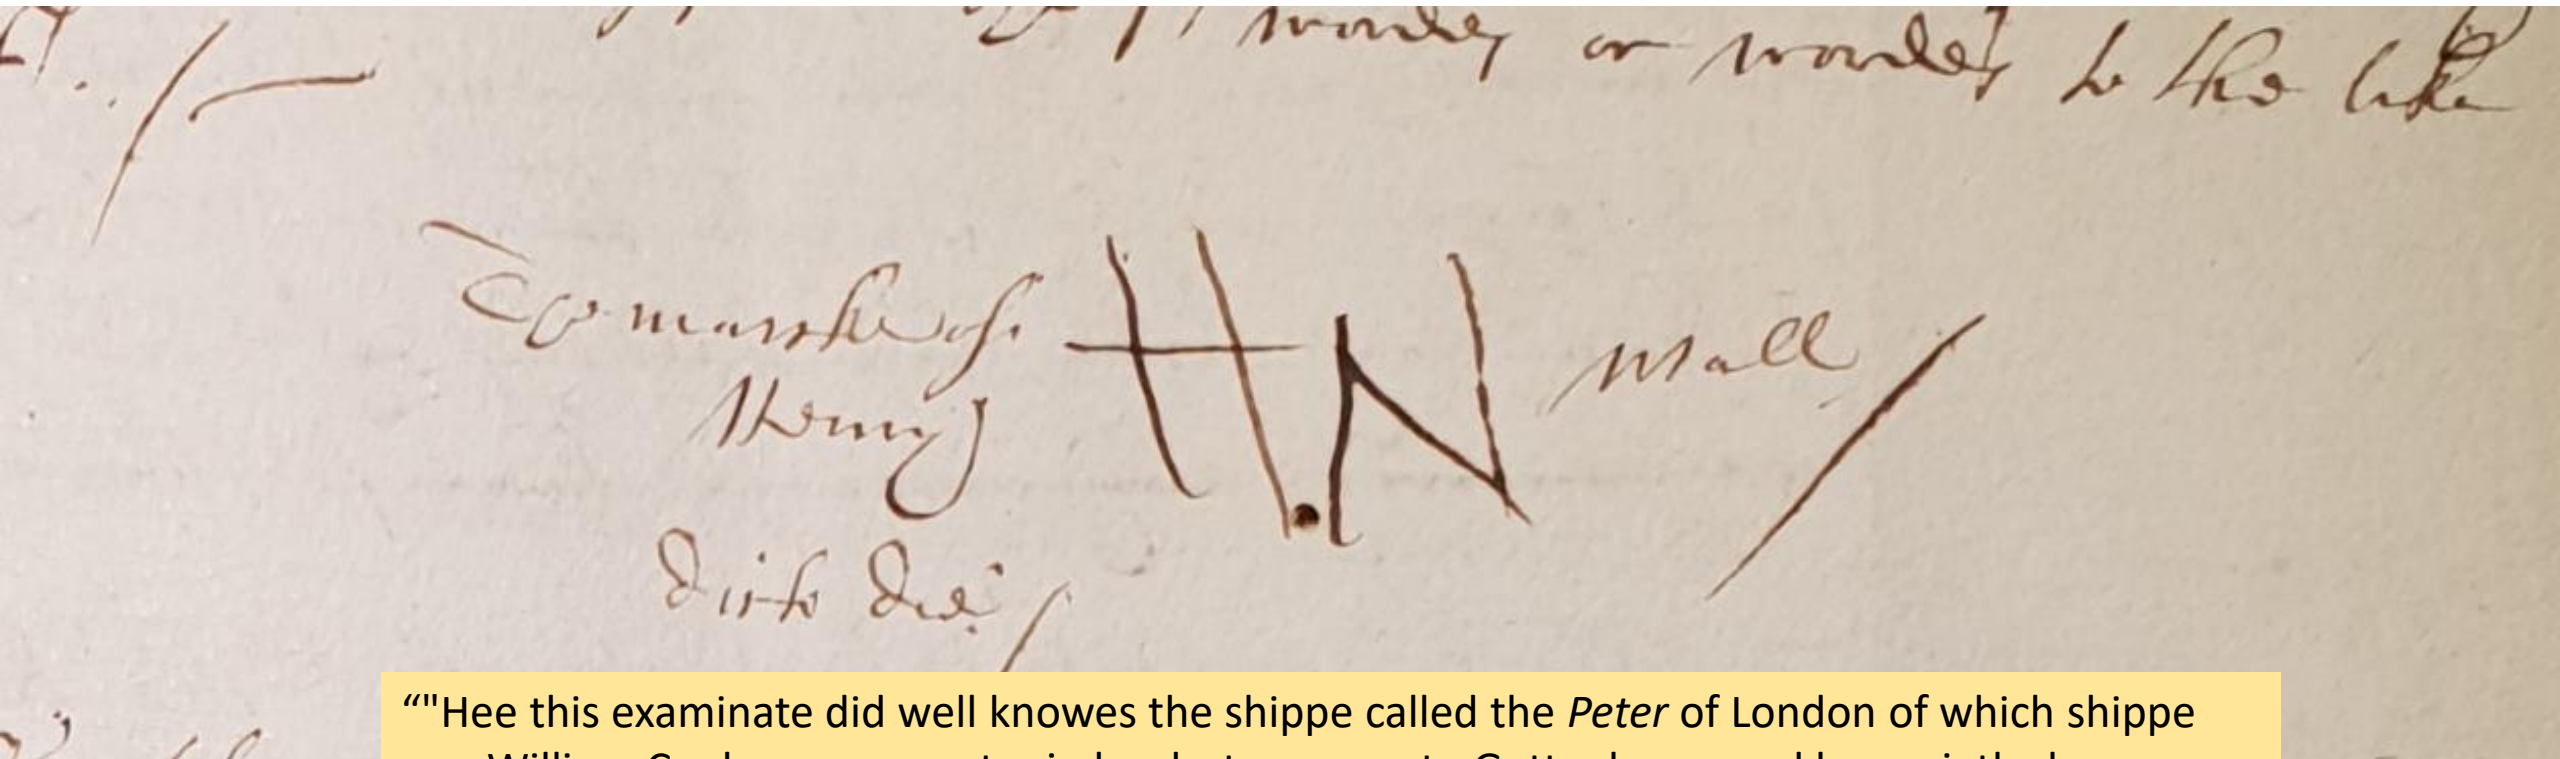 wordes or wordes to the like
The marke of
Henry H.N Wall
dicto die
“"Hee this examinate did well knowes the shippe called the Peter of London of which shippe